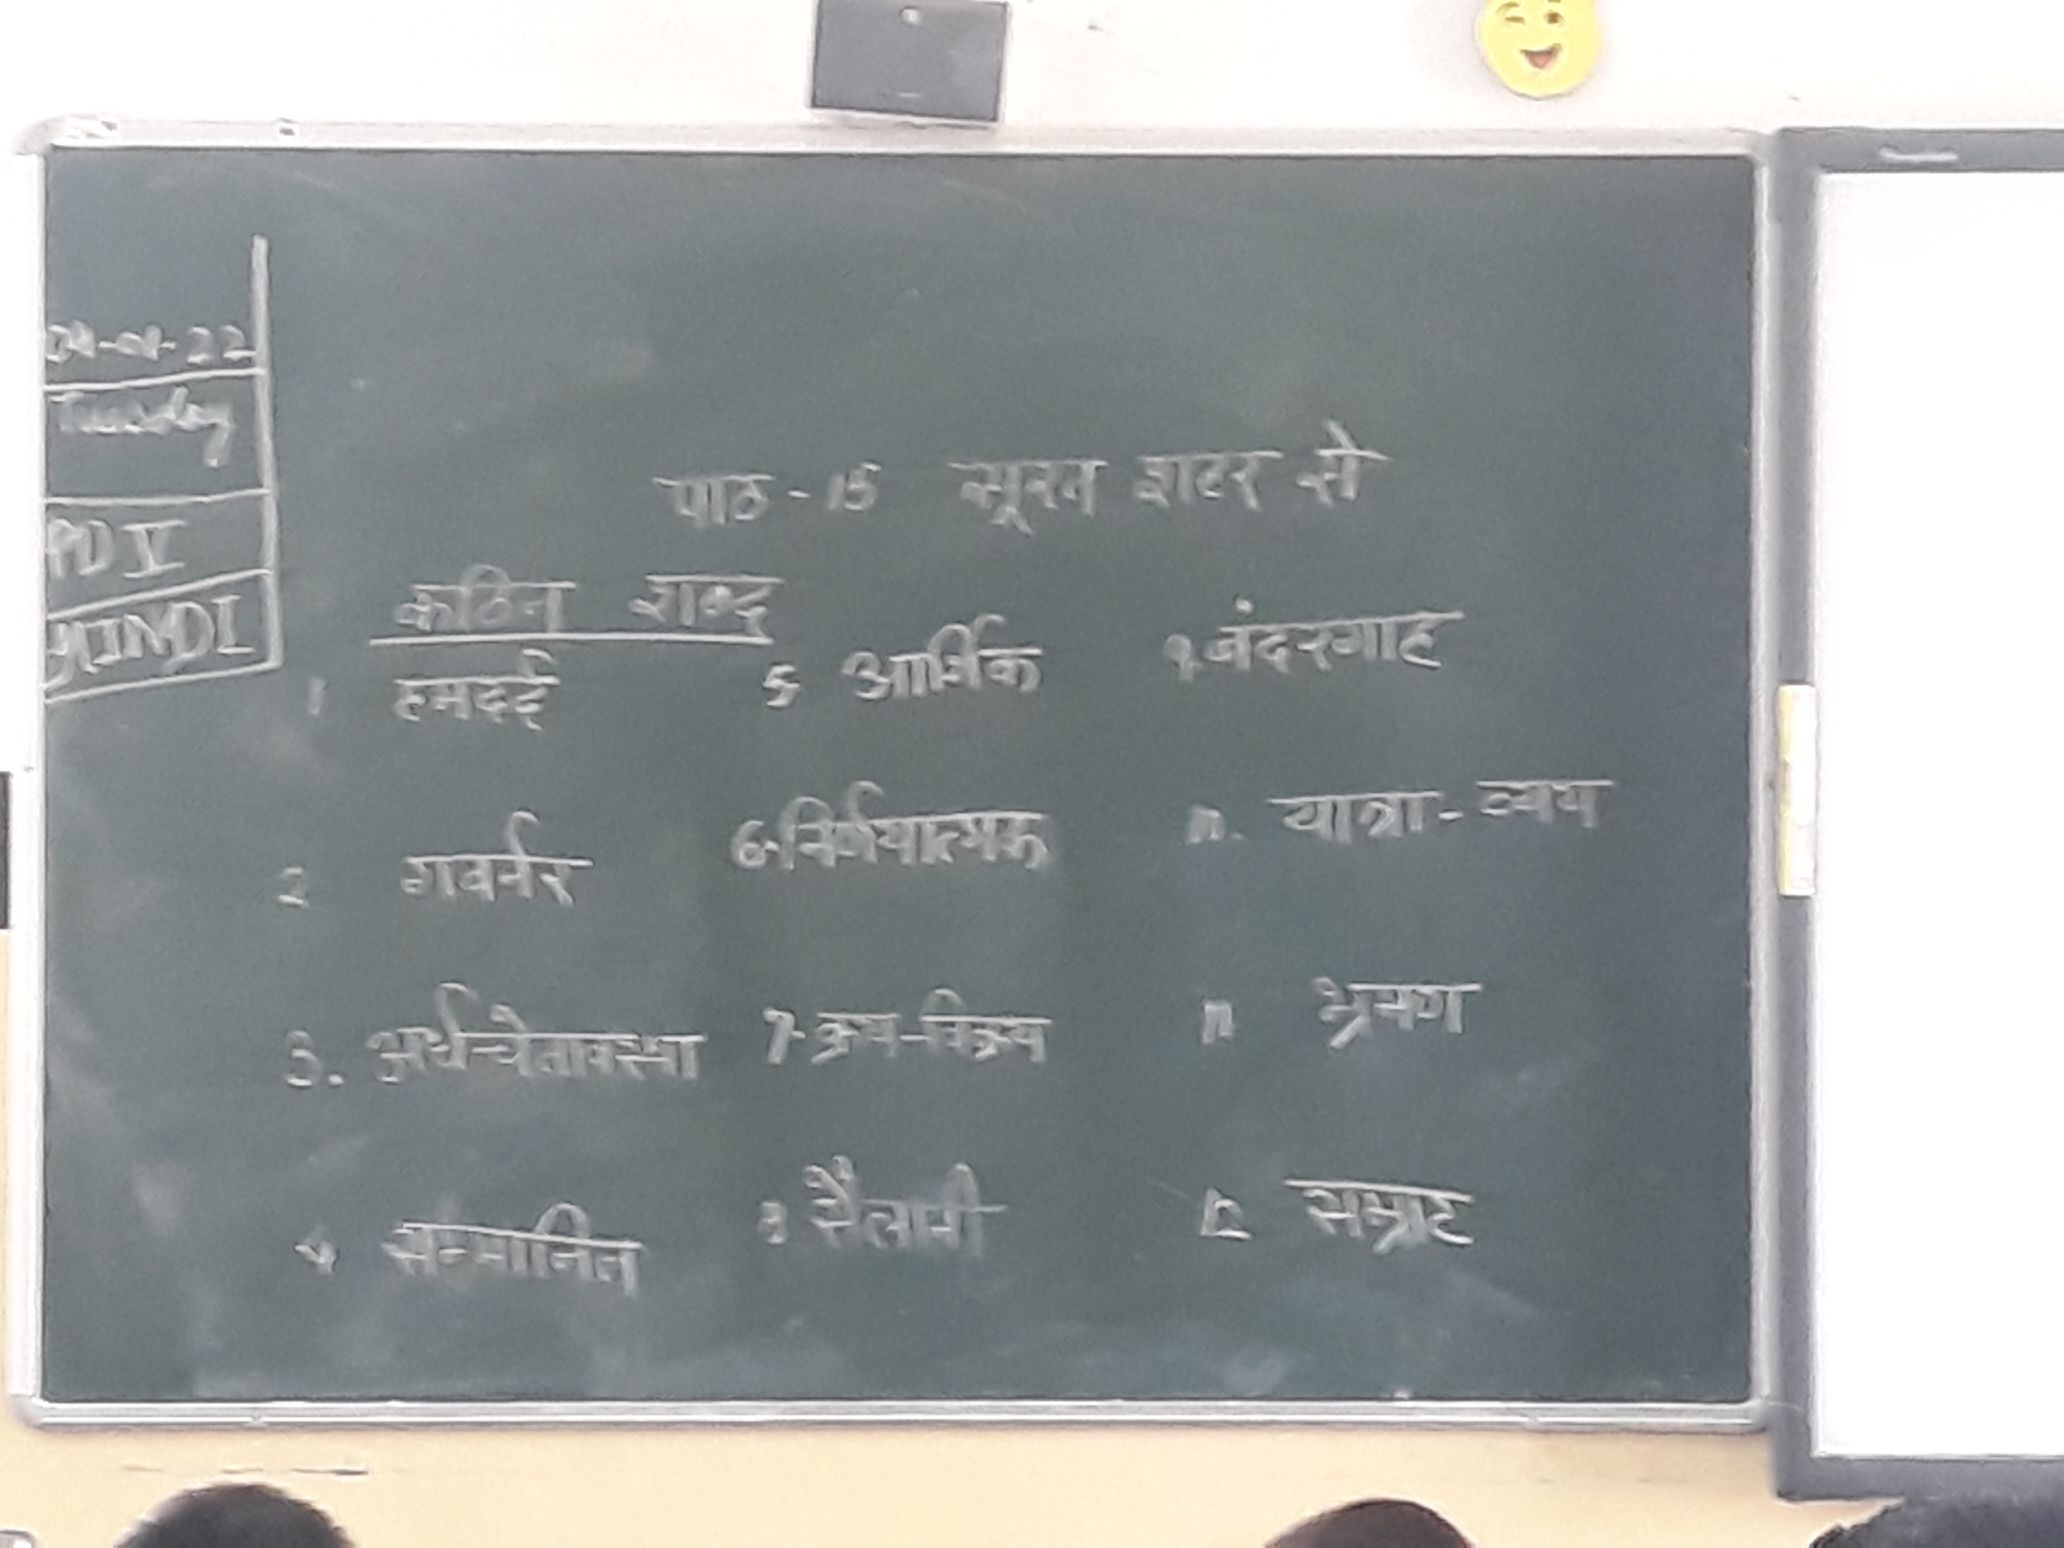 -22
Tuesday
PD V
HINDI
पाठ - 15 सूरत शहर से
कठिन शब्द
1 हमदर्द 5 आर्थिक 9. बंदरगाह
2 गवर्नर 6. निर्णयात्मक 10. यात्रा - व्यय
3. 7. क्रय-विक्रय 11 भ्रमण
4 सम्मानित 8 सैलानी 12 सम्राट